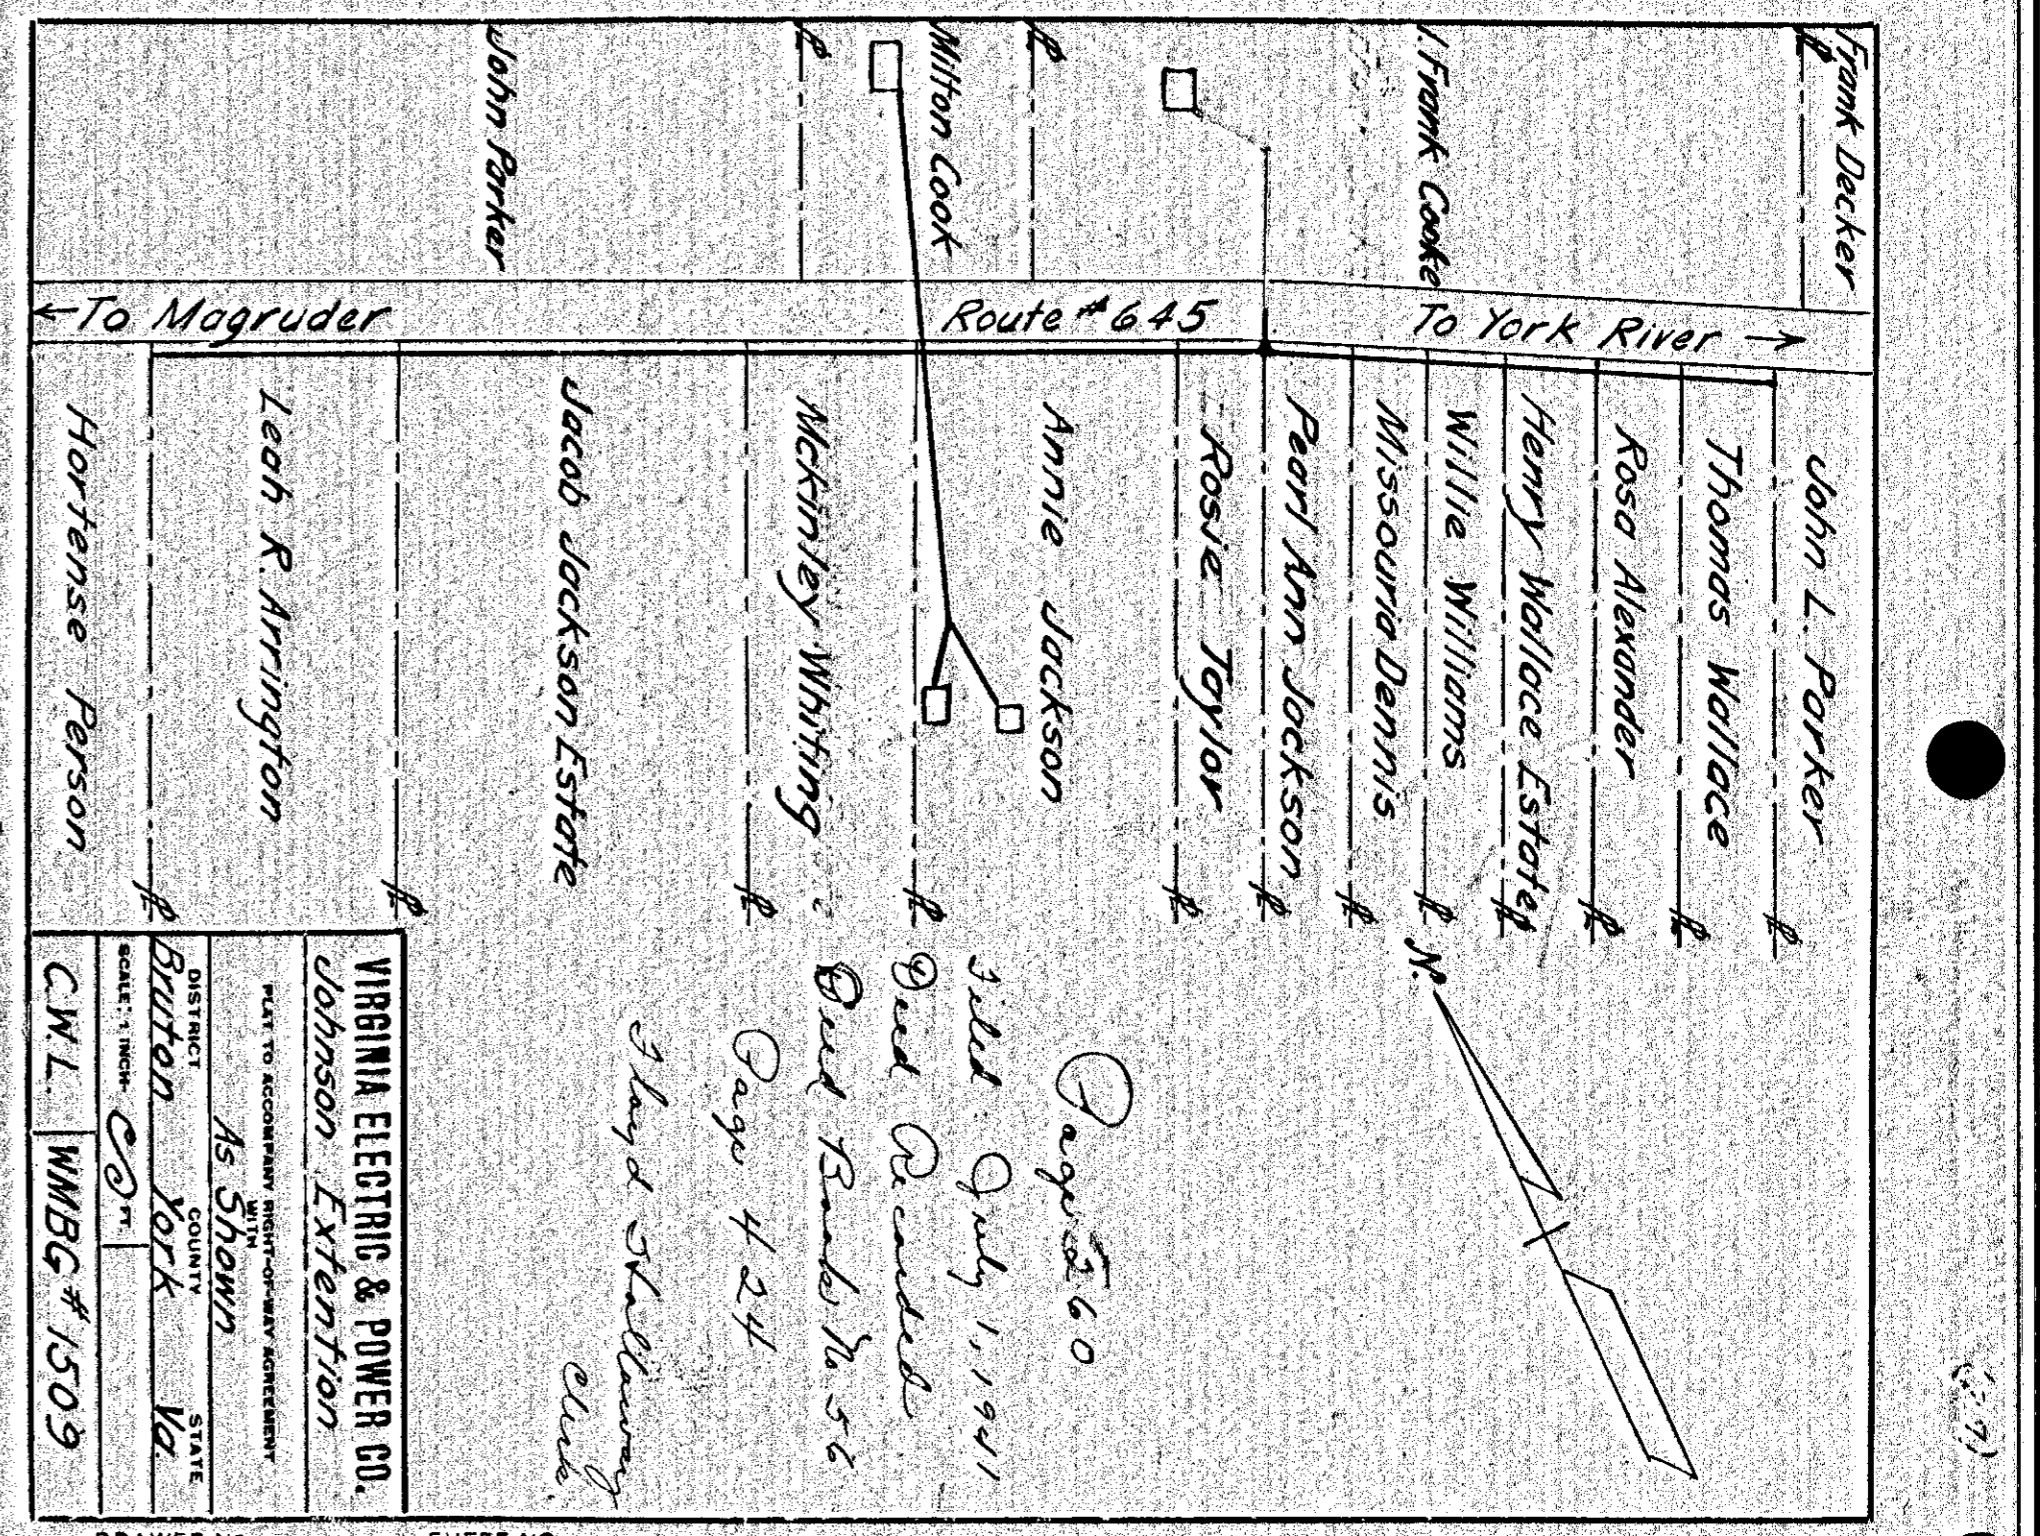 Frank Decker
I Frank Cooke
Milton Cook
John Parker
← To Magruder
Route #645
To York River →
John L. Parker
Thomas Wallace
Rosa Alexander
Henry Wallace Estate
Willie Williams
Missouria Dennis
Pearl Ann Jackson
Rosie Taylor
Annie Jackson
Mckinley Whiting
Jacob Jackson Estate
Leah R. Arrington
Hortense Person
N.
Page 260
Filed July 1, 1941
Deed Recorded
Deed Book No 56
Page 424
Floyd Holloway
Clerk.
VIRGINIA ELECTRIC & POWER CO.
Johnson Extention
PLAT TO ACCOMPANY RIGHT-OF-WAY AGREEMENT
WITH
As Shown
DISTRICT COUNTY STATE
Bruton York Va.
SCALE: 1 INCH- FT.
C.W.L. WMBG #1509